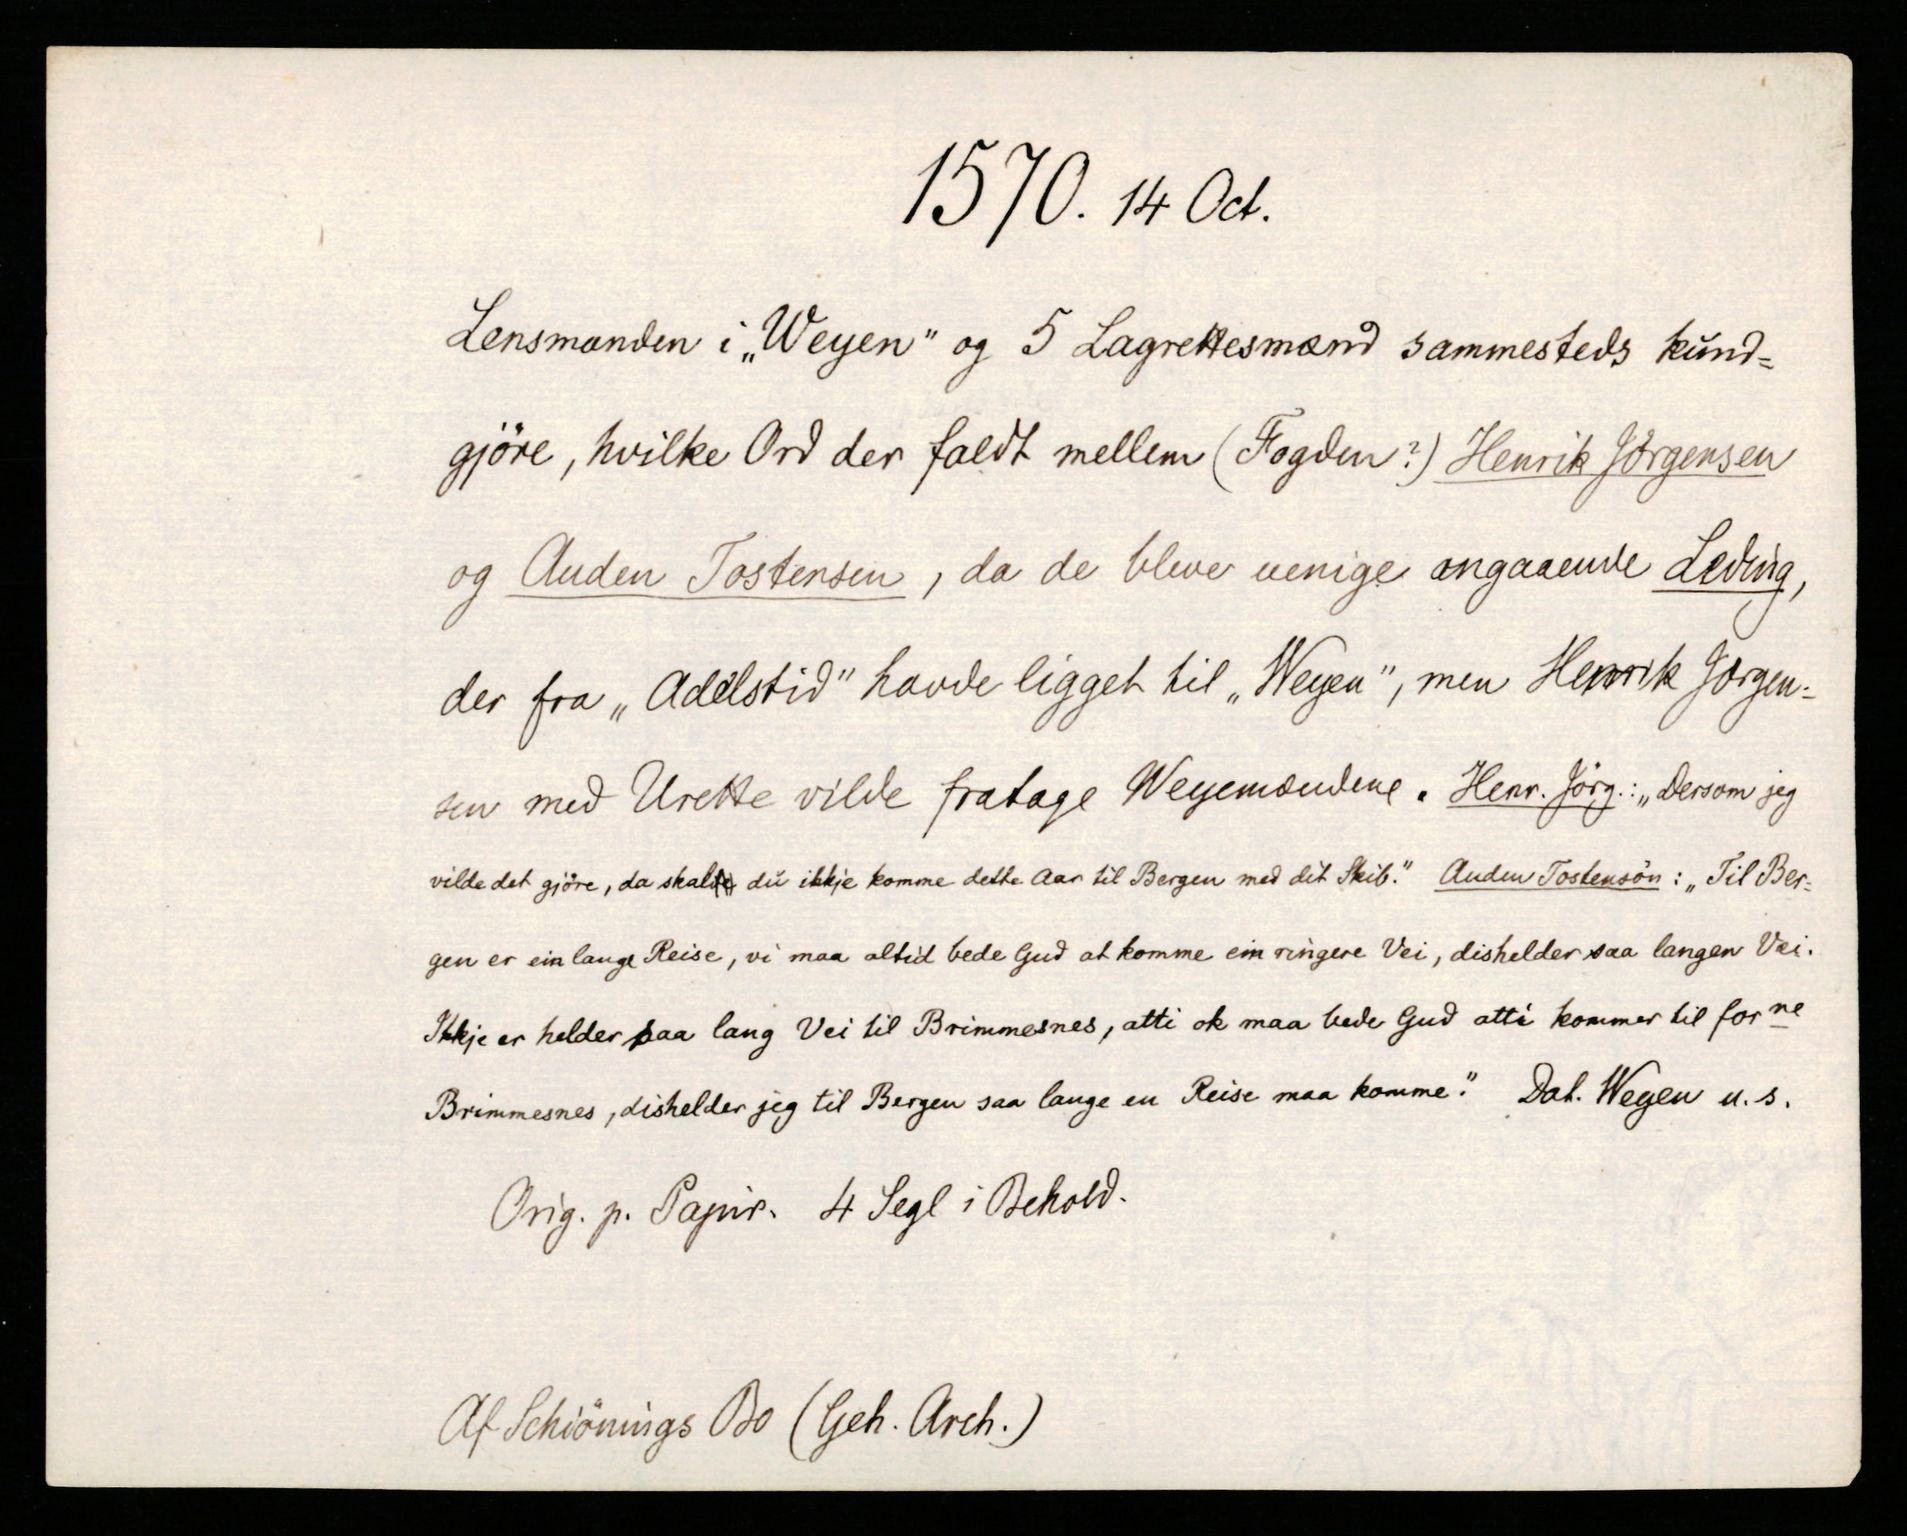 1570. 14 Oct.
Lensmanden i „Weyen" og 5 Lagrettesmænd sammesteds kund=
gjöre, hvilke Ord der faldt mellem (Fogden?) Henrik Jörgensen
og Auden Tostensen, da de bleve uenige angaaende Leding,
der fra „Adelstid" havde ligget til „Weyen", men Henrik Jørgen=
sen med Urette vilde fratage Weyemændene. Henr. Jörg.: „Dersom jeg
vilde det gjöre, da skal du ikkje komme dette Aar til Bergen med dit Skib." Auden Tostensön: „Til Ber=
gen er ein lange Reise, vi maa altid bede Gud at komme ein ringere Vei, dishelder saa langen Vei.
Ikkje er helder saa lang Vei til Brimmesnes, atti ok maa bede Gud atti kommer til forne
Brimmesnes, dishelder jeg til Bergen saa lange en Reise maa komme." Dat. Weyen u. s.
Orig. p. Papir. 4 Segl i Behold.
Af Schiönings Bo (Geh. Arch.)